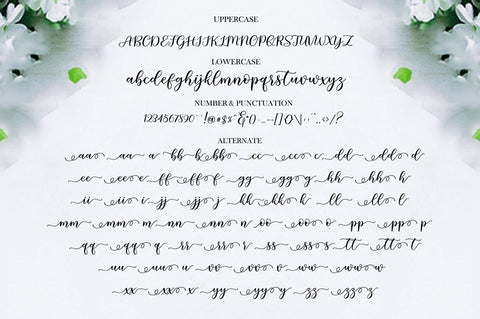 UPPERCASE
ABCDEFGHIJKLMNOPQRSTUVWXYZ
LOWERCASE
abcdefghijklmnopqrstuvwxyz
NUMBER & PUNCTUATION
1234567890
ALTERNATE
aaa aa a bb bbb b cc ccc c dd ddd d
ee eee e ff fff f gg ggg g hh hhh h
ii iii i jj jjj j kk kkk k ll lll l
mm mmm m nn nnn n oo ooo o pp ppp p
qq qqq q rr rrr r ss sss s tt ttt t
uu uuu u vv vvv v ww www w
xx xxx x yy yyy y zz zzz z